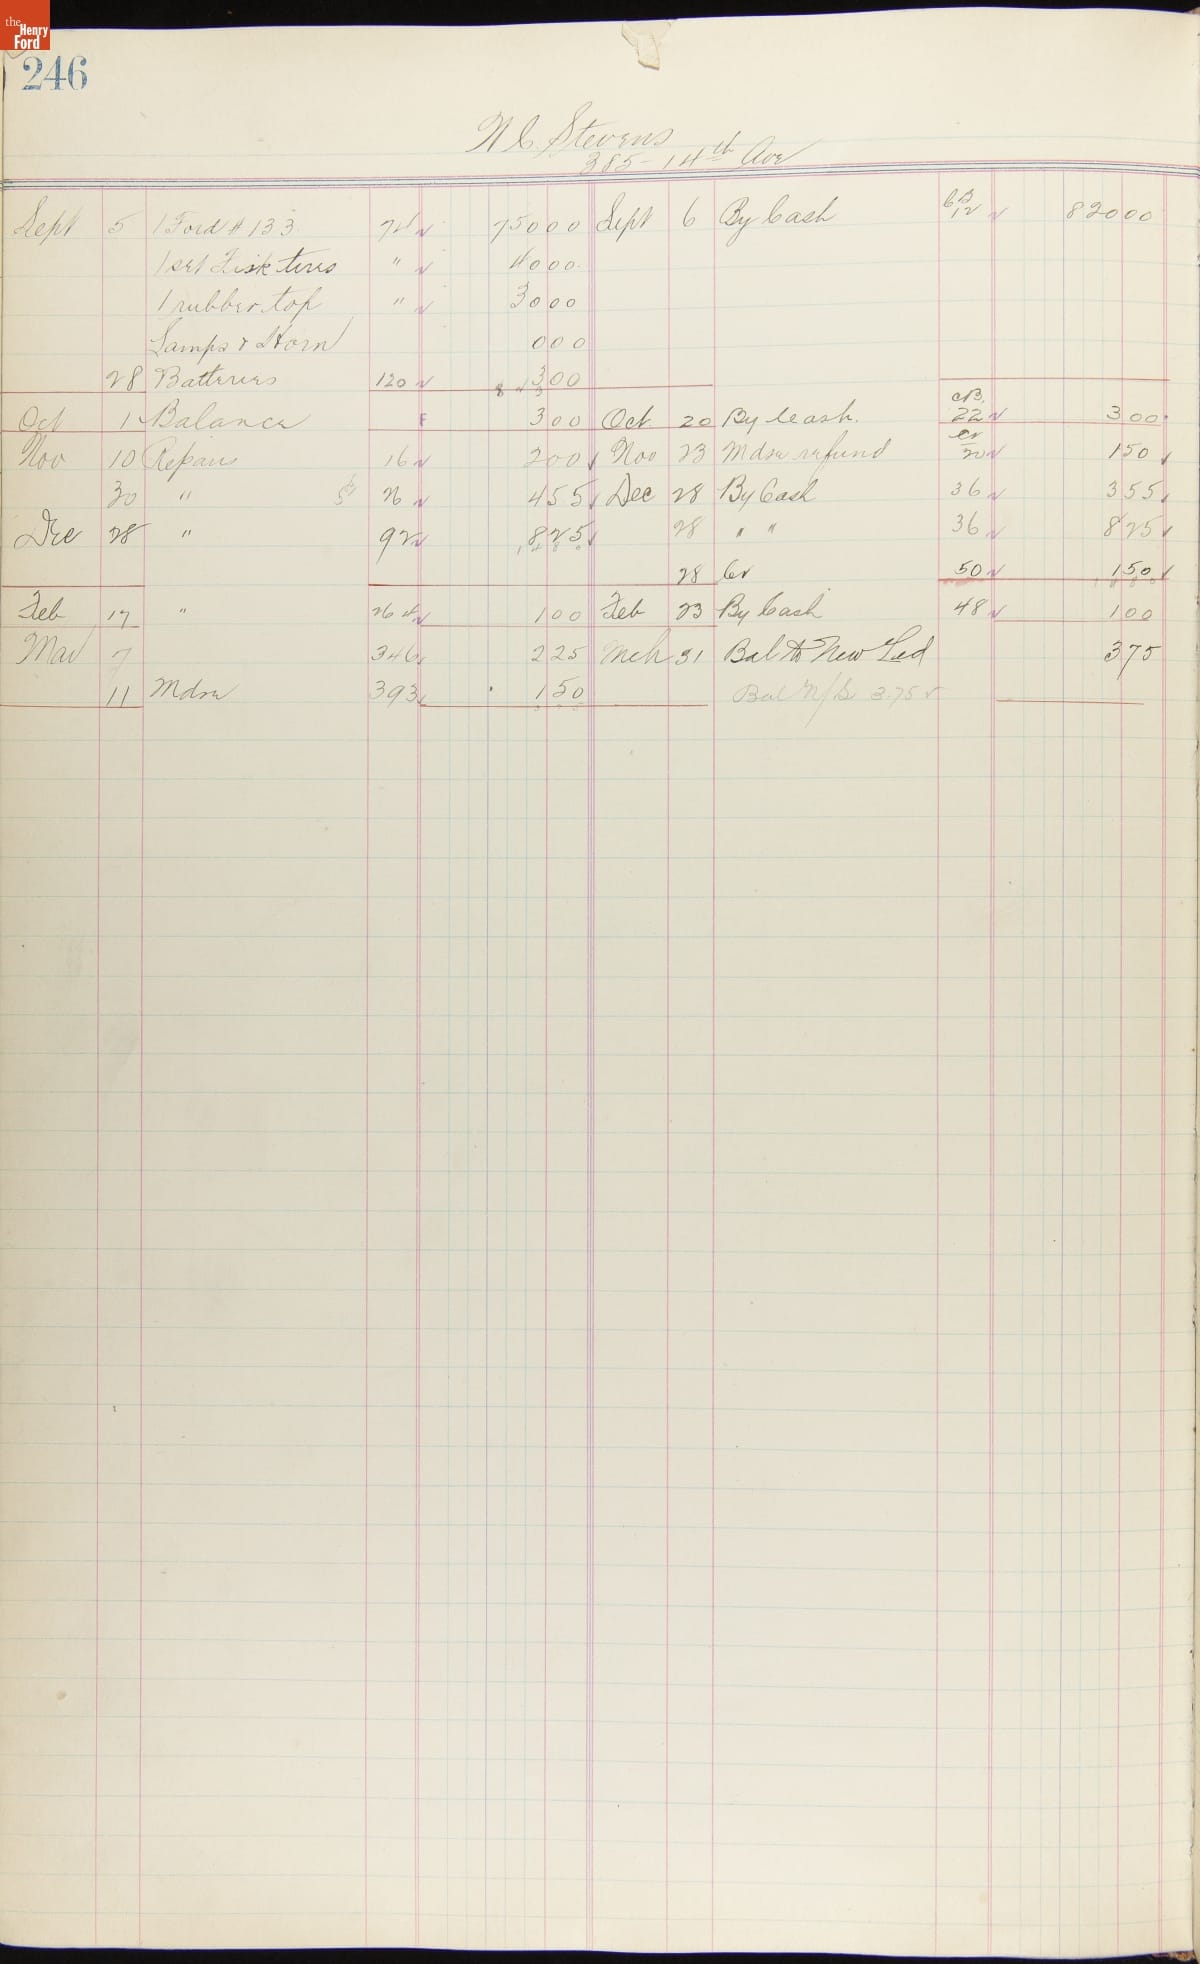 the Henry Ford
246
W C Stevens
385 - 14th Ave
Sept 5 1 Ford # 133 74 750 00 Sept 6 By Cash CB 12 820 00
1 set Fisk tires " 40 00
1 rubber top " 30 00
Lamps & Horn 0 00
28 Batteries 120 3 00
Oct 1 Balance F 3 00 Oct. 20 By Cash. CB. 22 3 00
Nov 10 Repairs 16 2 00 Nov 23 Mdse refund Cr 20 1 50
30 " 26 4 55 Dec 28 By Cash 36 3 55
Dec 28 " 92 8 25 28 " " 36 8 25
28 Cr 50 1 50
Feb 17 " 264 1 00 Feb 23 By Cash 48 1 00
Mar 7 346 2 25 Mch 31 Bal to New Led 3 75
11 Mdse 393 1 50 Bal N/L 3.75